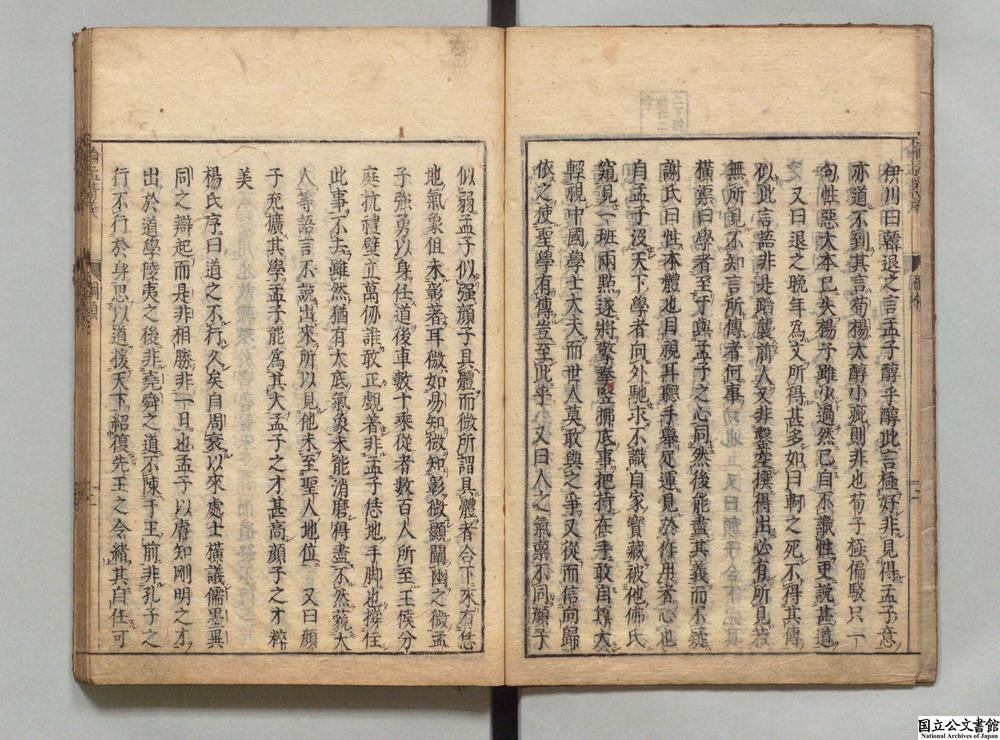 伊川曰韓退之言孟子醇乎醇此言極好非見得孟子意
亦道不到其言荀楊大醇小疵則非也荀子極偏駁只一
句性惡大本已失楊子雖少過然已自不識性更說甚道
又曰退之晚年爲文所得甚多如曰軻之死不得其傳
似此言語非是蹈襲前人又非鑿空撰得出必有所見若
無所見不知言所傳者何事
橫渠曰學者至于與孟子之心同然後能盡其義而不疑
謝氏曰性本體也目視耳聽手舉足運見於作用者心也
自孟子沒天下學者向外馳求不識自家寶藏被他佛氏
窺見一班兩點遂將擎拳豎拂底事把持在手敢自尊大
輕視中國學士大夫而世人莫敢與之爭又從而信向歸
依之使聖學有傳豈至此乎 又曰人之氣稟不同顏子
似弱孟子似强顏子具體而微所謂具體者合下來有恁
地氣象但未彰著耳微如易知微知彰微顯闡幽之微孟
子強勇以身任道後車數十乘從者數百人所至王侯分
庭抗禮壁立萬仞誰敢正覷著非孟子恁地手脚也撐住
此事不去雖然猶有大底氣象未能消磨得盡不然藐大
人等語言不說出來所以見他未至聖人地位 又曰顏
子充擴其學孟子能爲其大孟子之才甚高顏子之才粹
美
楊氏序曰道之不行久矣自周衰以來處士橫議儒墨異
同之辯起而是非相勝非一日也孟子以睿知剛明之才
出於道學陵夷之後非堯舜之道不陳于王前非孔子之
行不行於身思以道援天下紹復先王之令緖其自任可
綱領
国立公文書館
National Archives of Japan